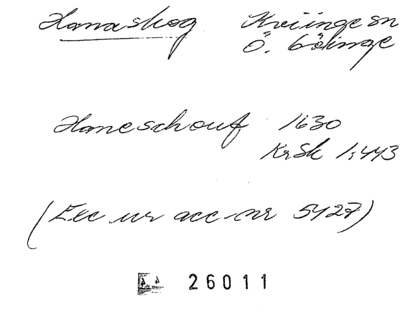 Hanaskog Kviinge sn
Ö. Göinge
Haneschouf 1630
KrSk 1:443
(Exc ur acc nr 5927)
26011